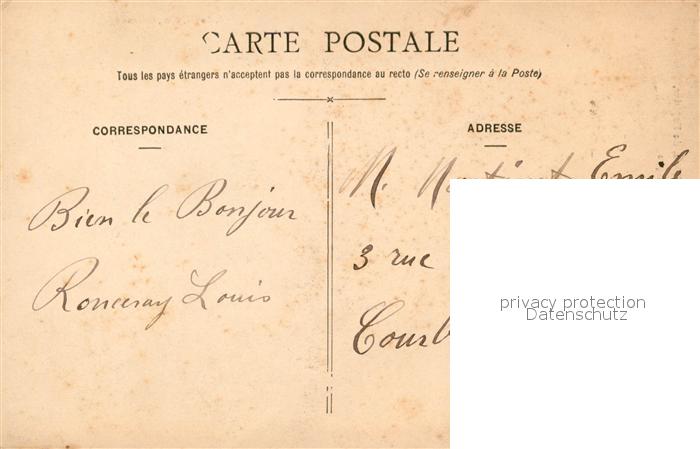 CARTE POSTALE
Tous les pays étrangers n'acceptent pas la correspondance au recto (Se renseigner à la Poste)
CORRESPONDANCE
ADRESSE
Bien le Bonjour
Ronceray Louis
M. Emile
3 rue
privacy protection
Datenschutz